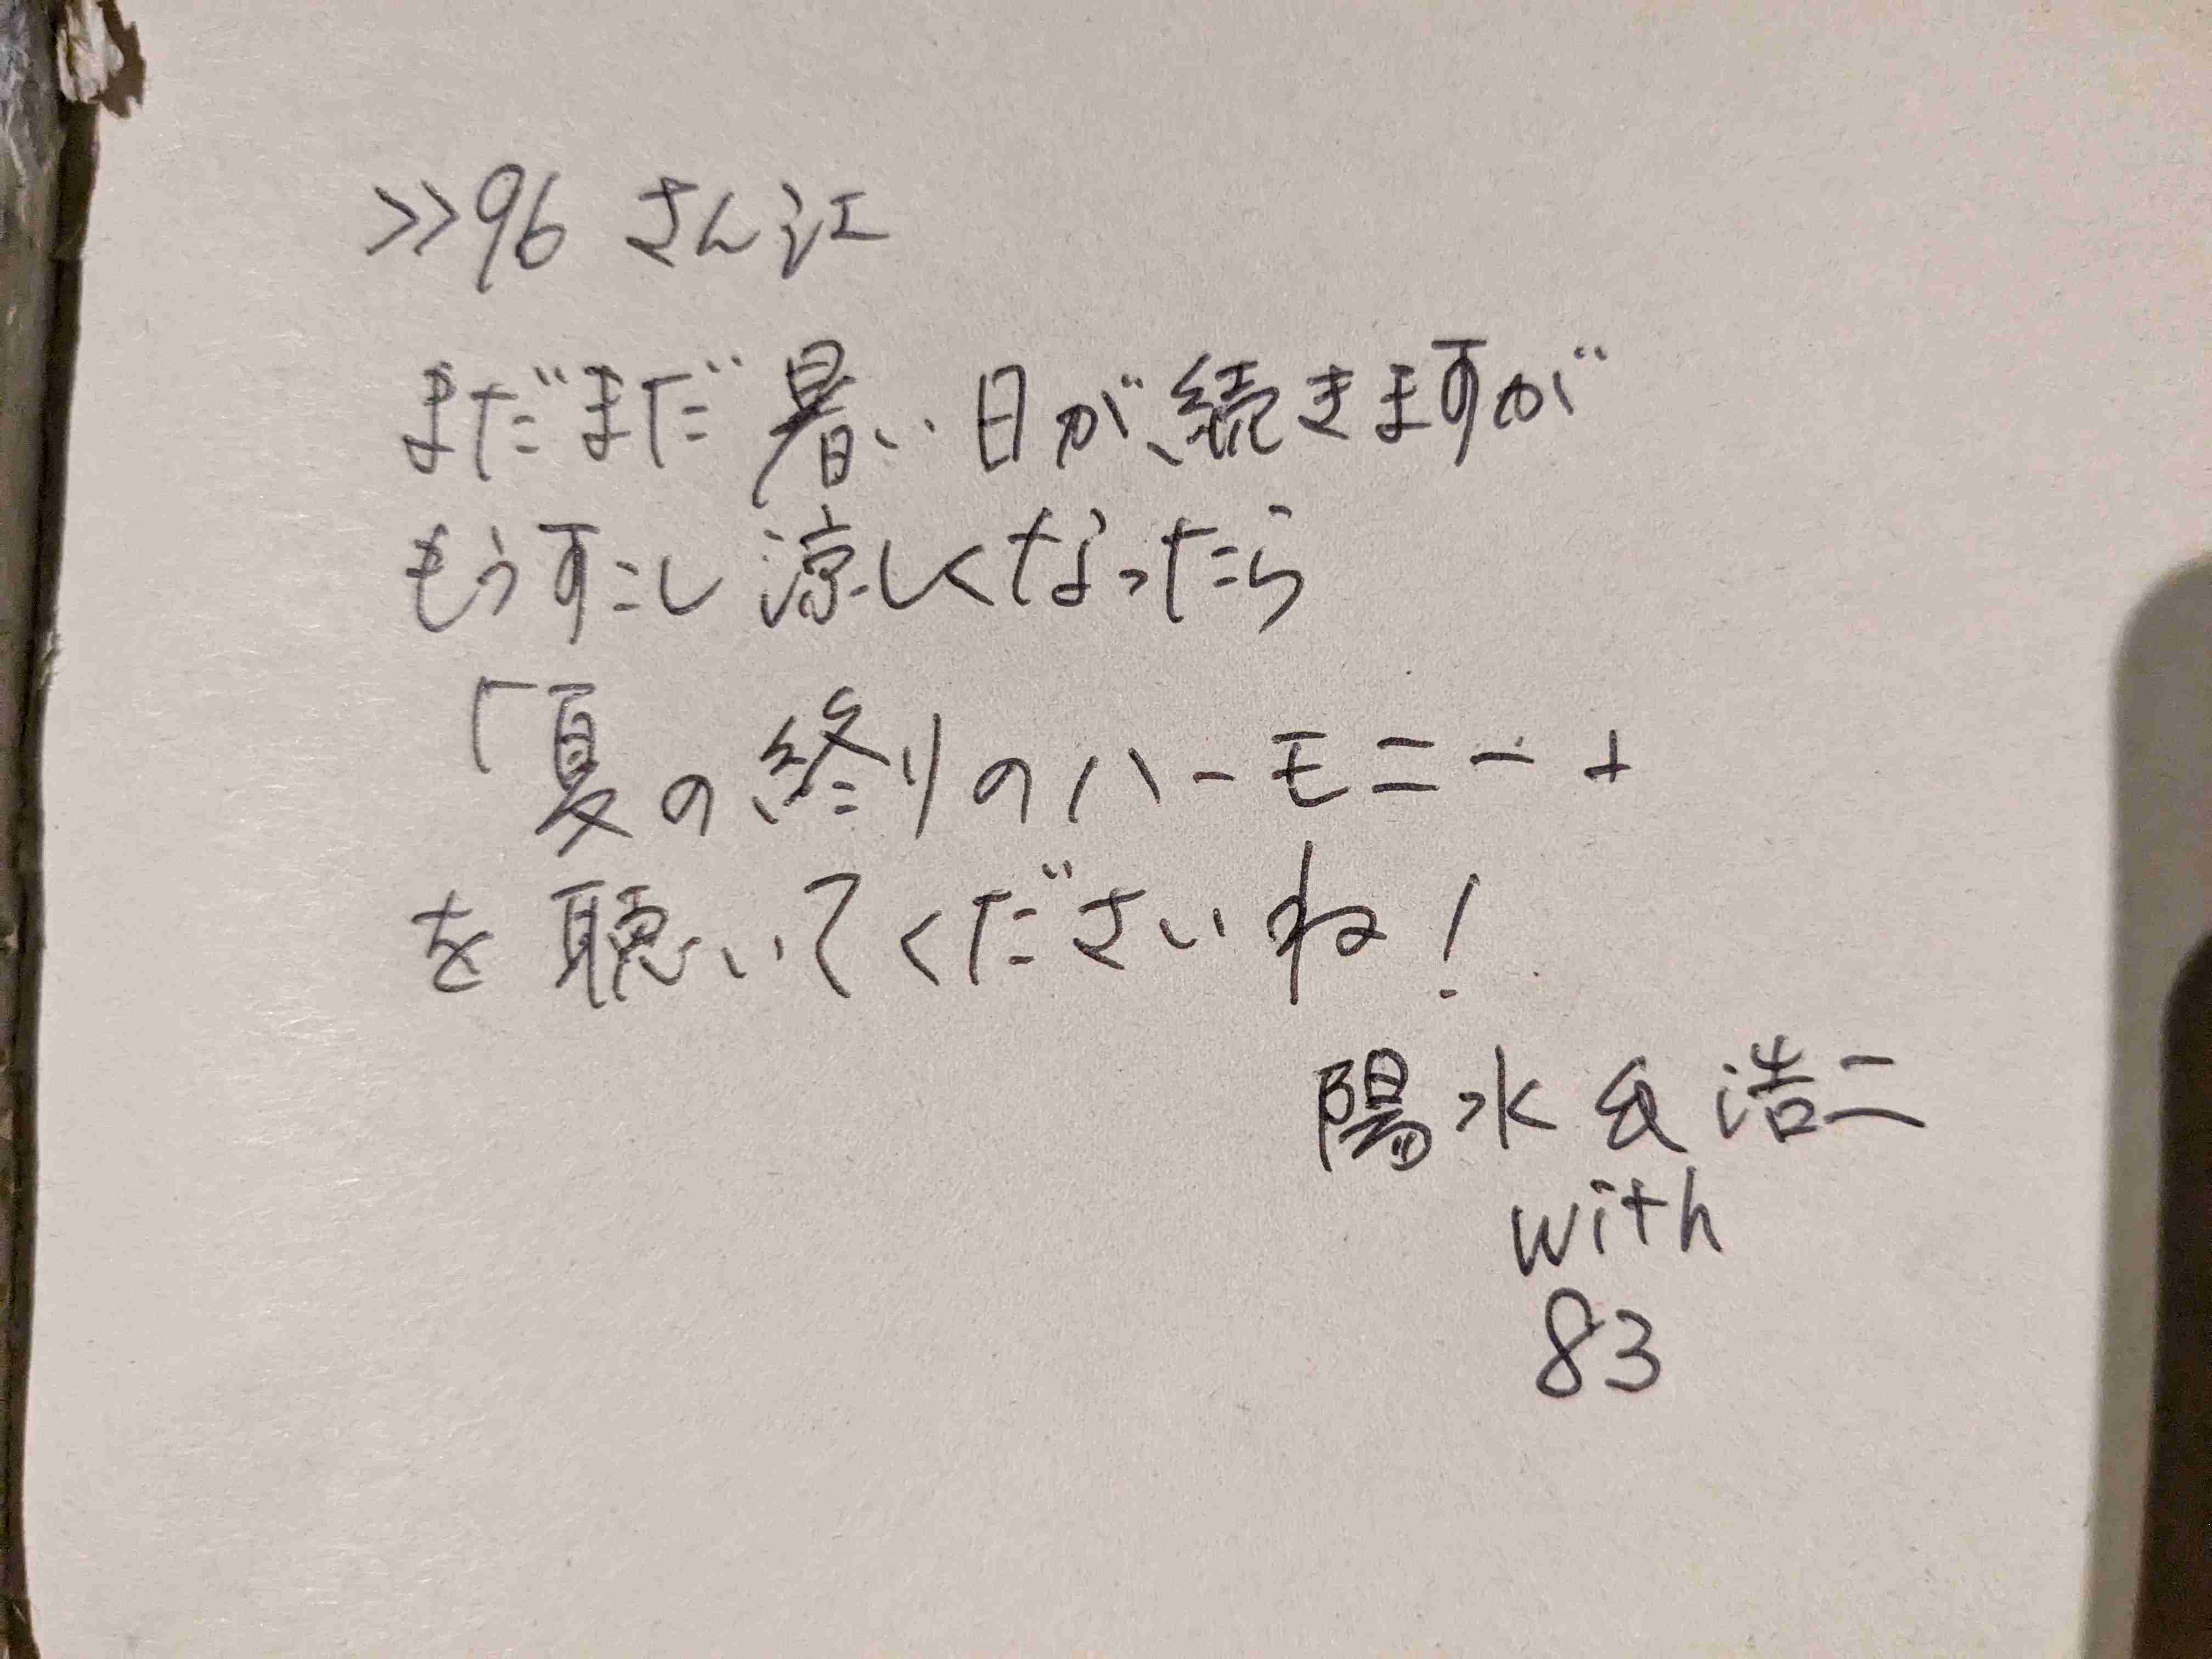 >>96 さん江
まだまだ暑い日が続きますが
もうすこし涼しくなったら
「夏の終りのハーモニー」
を聴いてくださいね!
陽水&浩二
with
83